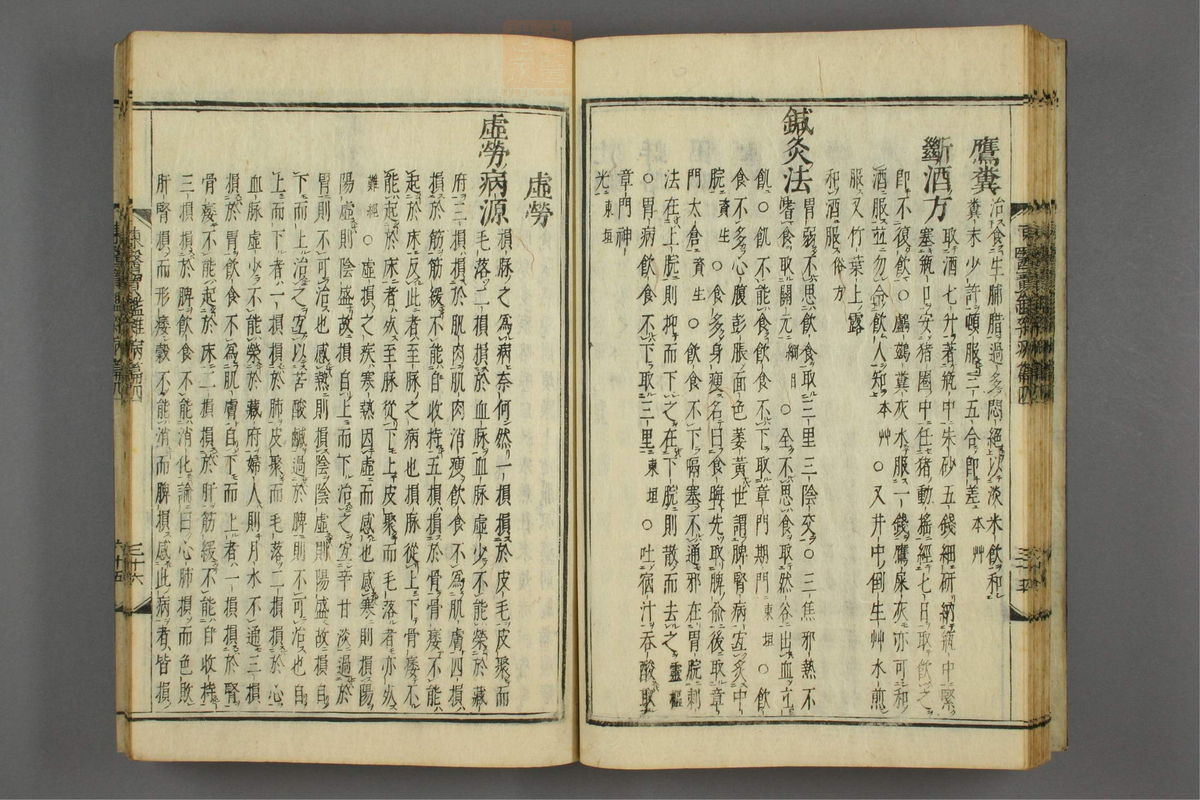 鷹糞
治食生肺腊過多悶絶以淡米飲和
糞末少許頓服三五合即差本艸
斷酒方
取酒七升著瓶中朱砂五錢細硏納瓶中緊
塞瓶口安猪圈中任猪動搖經七日取飮之
即不復飮○鸕鷀糞灰水服一錢鷹屎灰亦可和
酒服並勿令飮人知本艸○又井中倒生艸水煎
服又竹葉上露
和酒服俗方
鍼灸法
胃弱不思飮食取三里三陰交○三焦邪熱不
嗜食取關元綱目○全不思食取然谷出血立
飢○飢不能食飮食不下取章門期門東垣○飮
食不多心腹彭脹面色萎黃世謂脾腎病宜灸中
脘資生○食多身瘦名曰食晦先取脾兪後取章
門太倉資生○飮食不下膈塞不通邪在胃脘刺
法在上脘則抑而下之在下脘則散而去之靈樞
○胃病飮食不下取三里東垣○吐宿汁呑酸取
章門神
光東垣
虛勞
虛勞病源
損脉之爲病奈何然一損損於皮毛皮聚而
毛落二損損於血脉血脉虛少不能榮於藏
府三損損於肌肉肌肉消瘦飮食不爲肌膚四損
損於筋筋緩不能自收持五損損於骨骨痿不能
起於床反此者至脉之病也損脉從上下骨痿不
能起於床者死至脉從下上皮聚而毛落者亦死
難經○虛損之疾寒熱因虛而感也感寒則損陽
陽虛則陰盛故損自上而下治之宜辛甘淡過於
胃則不可治也感熱則損陰陰虛則陽盛故損自
下而上治之宜以苦酸鹹過於脾則不可治也自
上而下者一損損於肺皮聚而毛落二損損於心
血脉虛少不能榮於藏府婦人則月水不通三損
損於胃飮食不爲肌膚自下而上者一損損於腎
骨痿不能起於床二損損於肝筋緩不能自收持
三損損於脾飮食不能消化論曰心肺損而色敗
肝腎損而形痿穀不能消而脾損感此病者皆損
東醫寶鑑雜病篇四
三十六